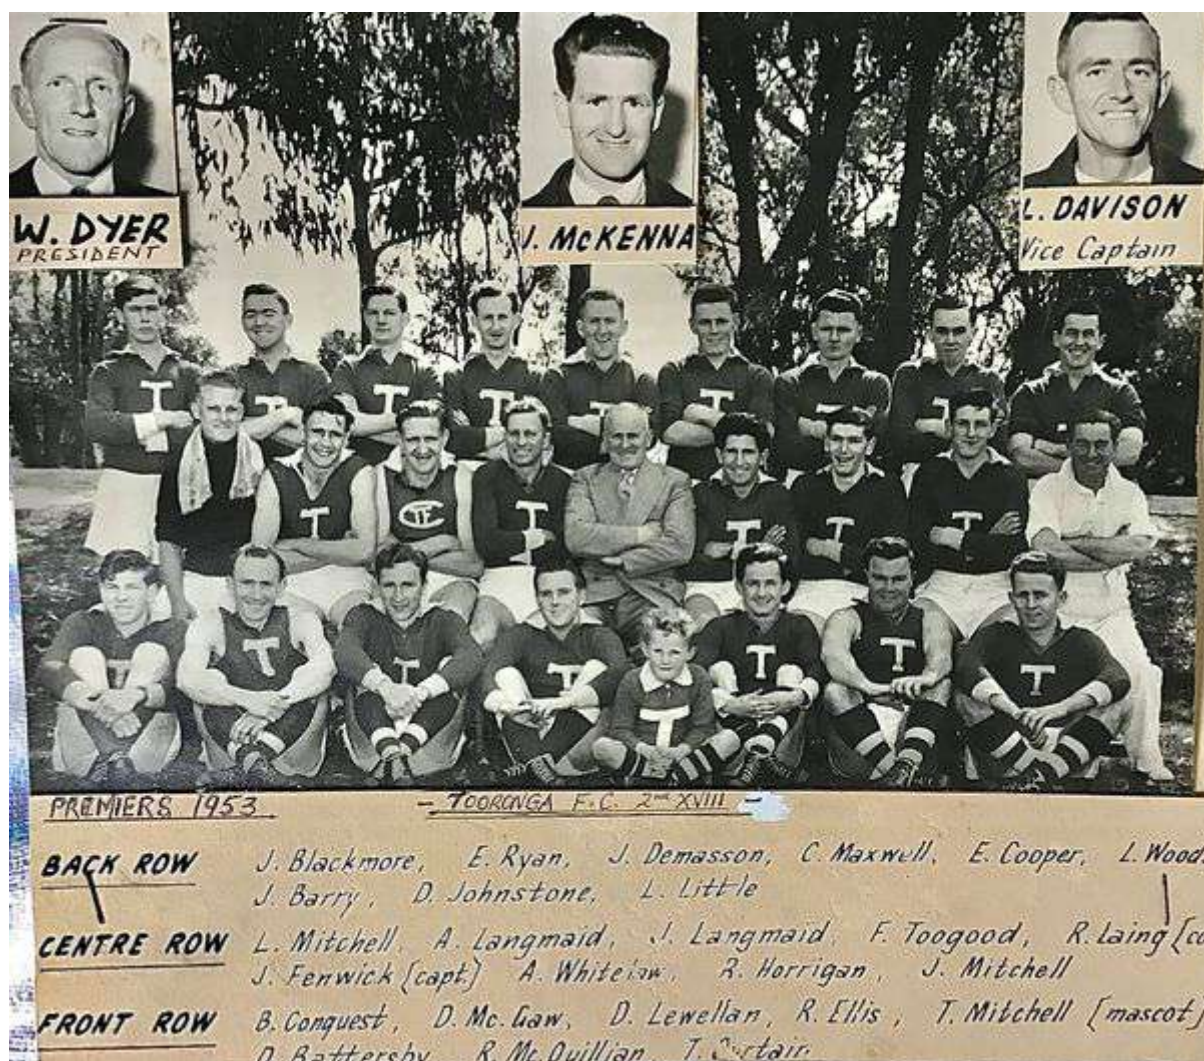 W. DYER
PRESIDENT
J. McKENNA
L. DAVISON
Vice Captain
PREMIERS 1953 - TOORONGA F.C. 2nd XVIII -
BACK ROW J. Blackmore, E. Ryan, J. Demasson, C. Maxwell, E. Cooper, L. Wood
J. Barry, D. Johnstone, L. Little
CENTRE ROW L. Mitchell, A. Langmaid, J. Langmaid, F. Toogood, R. Laing
J. Fenwick [capt.] A. Whitelaw, R. Horrigan, J. Mitchell
FRONT ROW B. Conquest, D. Mc. Gaw, D. Lewellan, R. Ellis, T. Mitchell [mascot]
D. Battersby R. McQuillian, T.